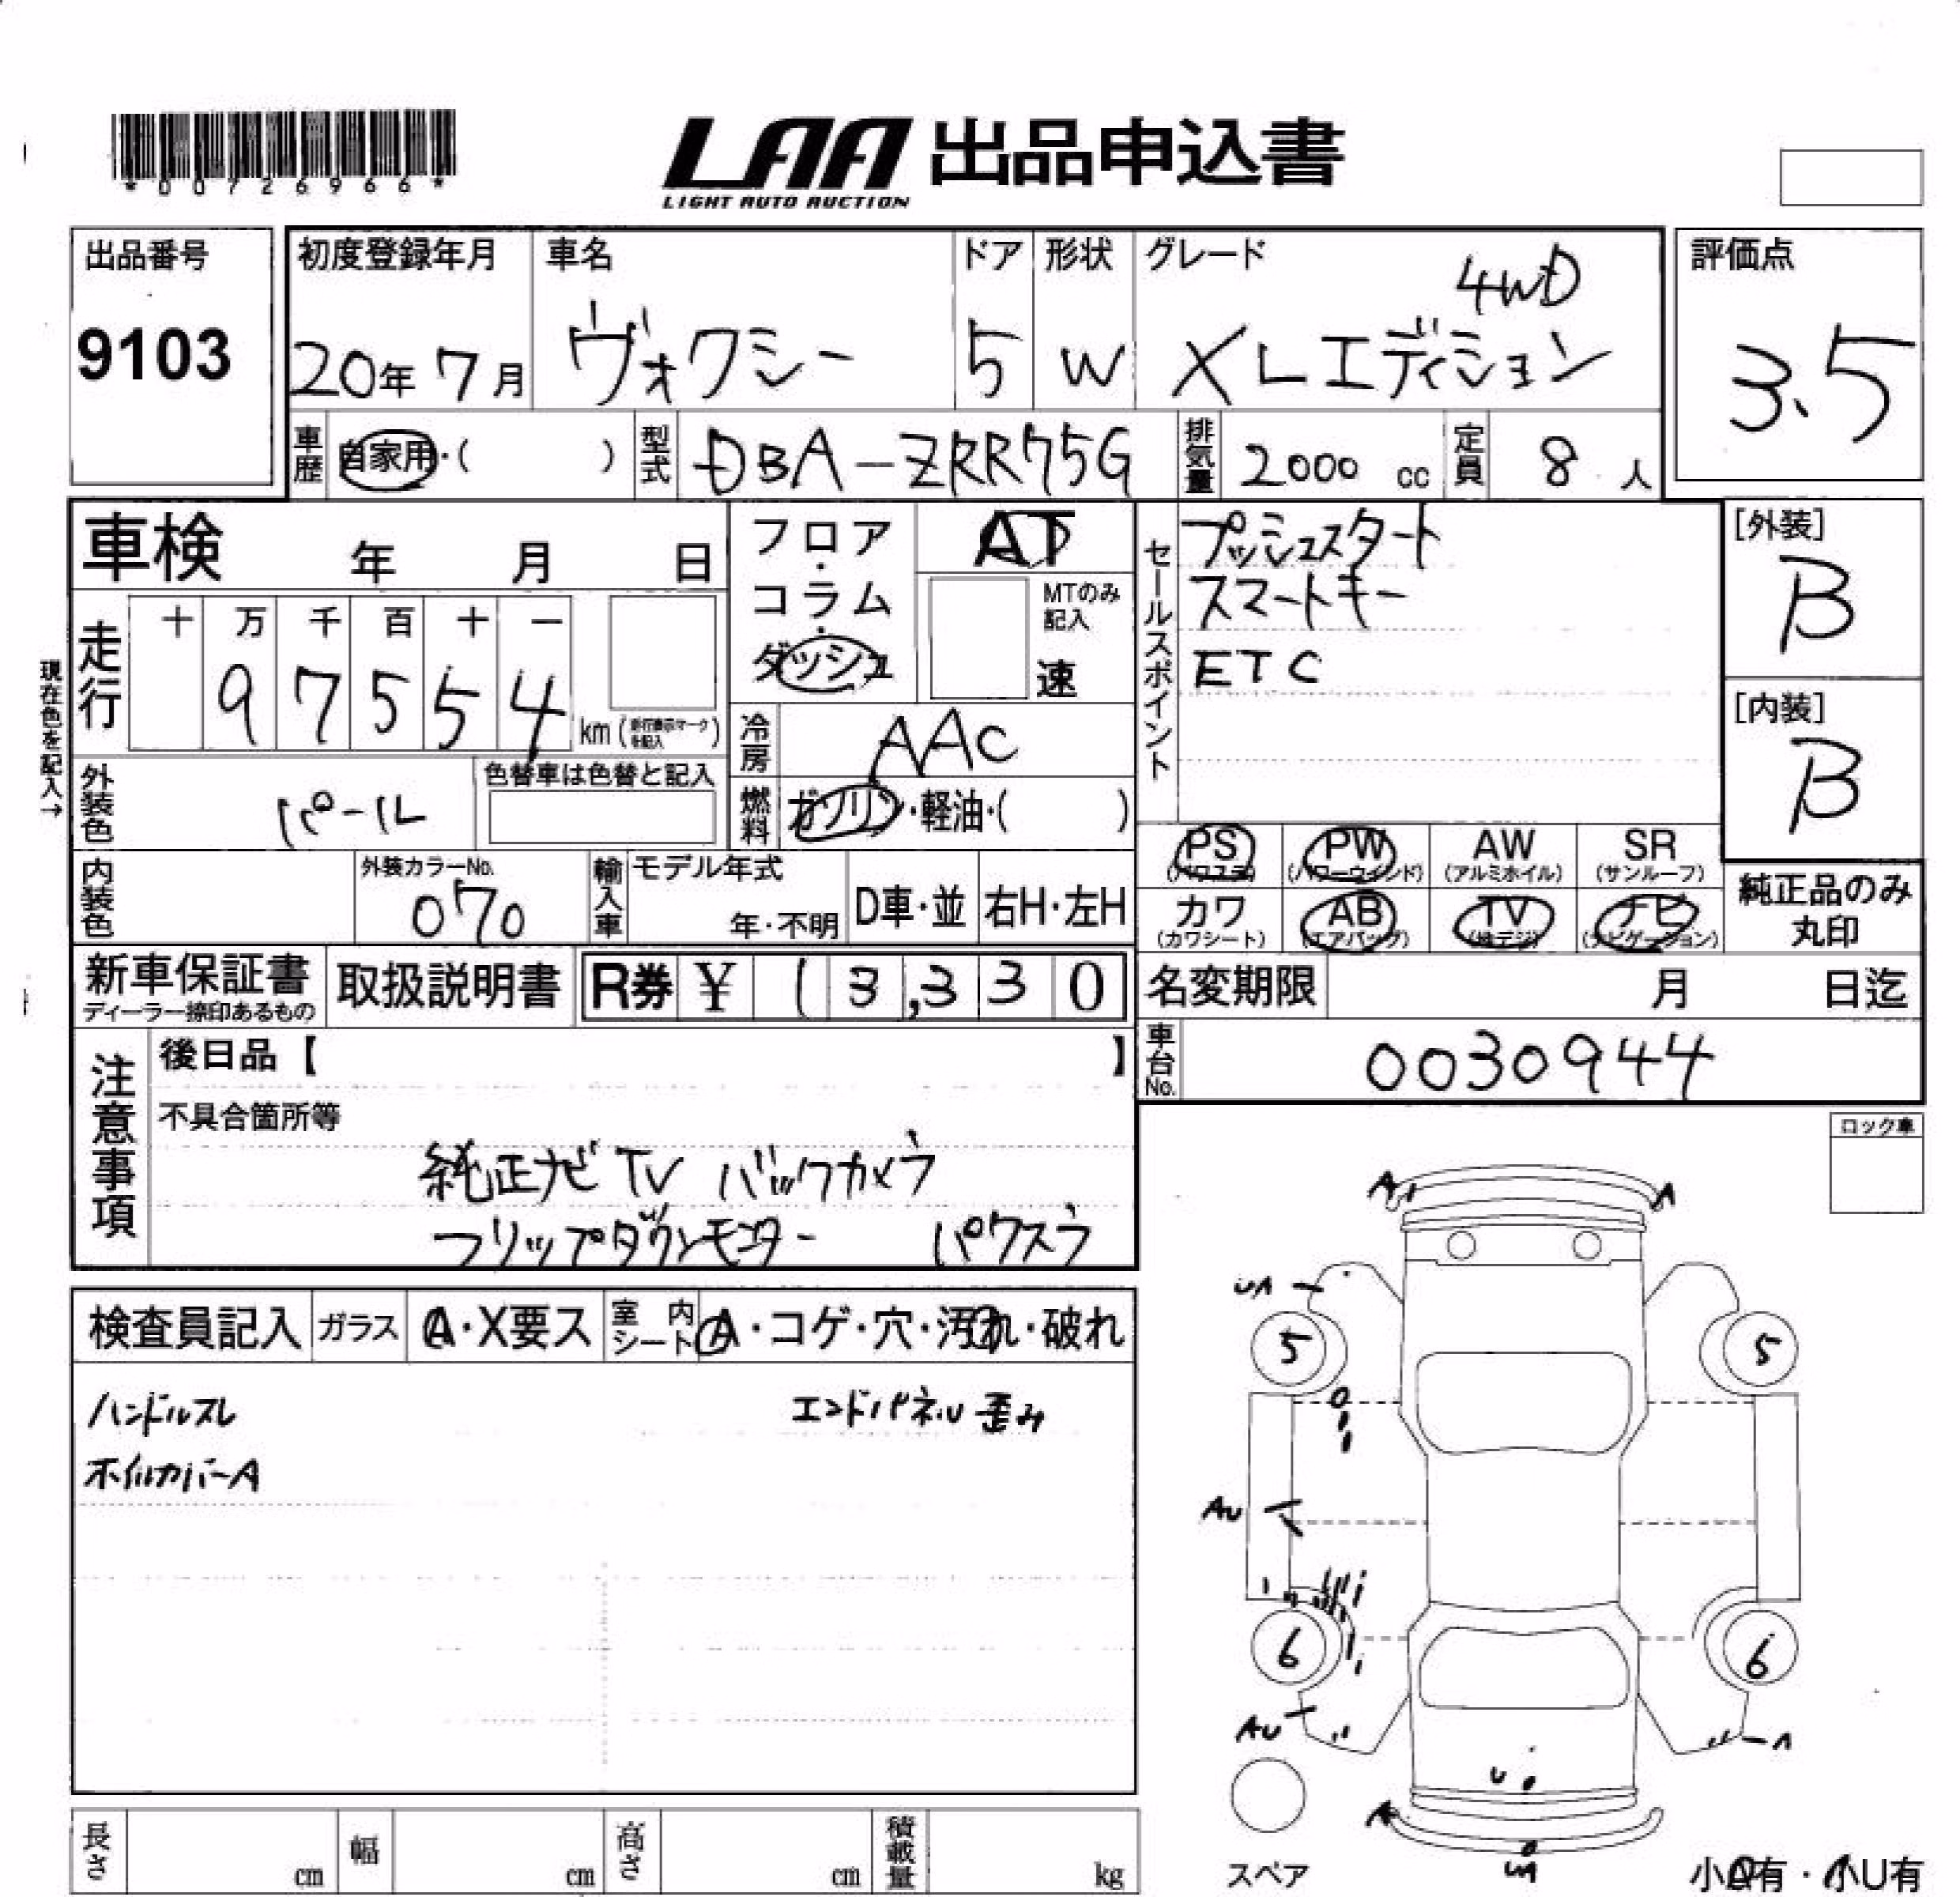 *00726966*
LAA 出品申込書
LIGHT AUTO AUCTION
出品番号
9103
初度登録年月
20年 7月
車名
ヴォクシー
ドア
5
形状
W
グレード
4WD
X Lエディション
評価点
3.5
車歴
自家用・( )
型式
DBA-ZRR75G
排気量
2000 cc
定員
8 人
車検 年 月 日
フロア・コラム・ダッシュ
AT
MTのみ記入
速
セールスポイント
プッシュスタート
スマートキー
ETC
[外装]
B
[内装]
B
現在色を記入→
走行
十 万 千 百 十 一
9 7 5 5 4
km (走行表示マークを記入)
冷房
AAC
外装色
パール
色替車は色替と記入
燃料
ガソリン・軽油・( )
PS (パワステ)
PW (パワーウィンド)
AW (アルミホイル)
SR (サンルーフ)
カワ (カワシート)
AB (エアバッグ)
TV (地デジ)
ナビ (ナビゲーション)
純正品のみ
丸印
内装色
外装カラーNo.
070
輸入車
モデル年式
年・不明
D車・並
右H・左H
新車保証書
ディーラー捺印あるもの
取扱説明書
R券 ¥ 13,330
名変期限 月 日迄
車台No.
0030944
注意事項
後日品【 】
不具合箇所等
純正ナビ TV バックカメラ
フリップダウンモニター パワスラ
ロック車
検査員記入
ガラス
A・X要ス
室内シート
A・コゲ・穴・汚れ・破れ
ハンドルスレ
エンドパネル歪み
ホイルカバーA
A
A
UA
5
5
AU
6
6
AU
A
U
A
UA
スペア
小A有・小U有
長さ cm
幅 cm
高さ cm
積載量 kg